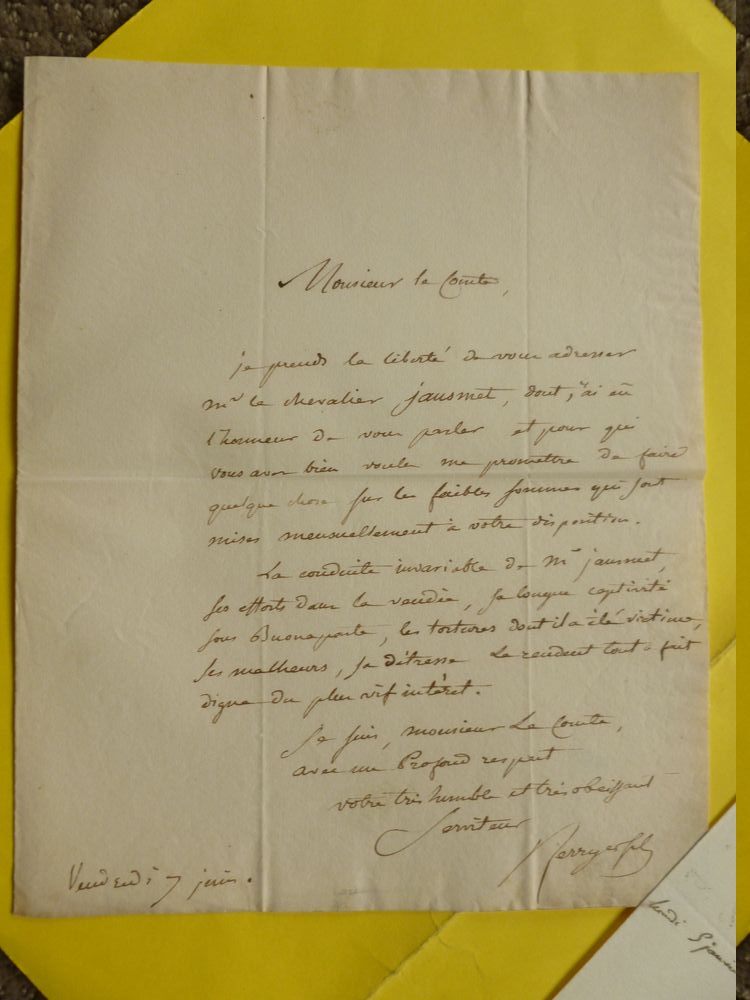 Monsieur le Comte,
je prends la liberté de vous adresser
Mr le chevalier jausmet, dont j'ai eu
l'honneur de vous parler et pour qui
vous avez bien voulu me promettre de faire
quelque chose sur les faibles sommes qui sont
mises mensuellement à votre disposition.
La conduite invariable de Mr jausmet,
ses efforts dans la vendée, sa longue captivité
sous Buonaparte, les tortures dont il a été victime,
ses malheurs, sa détresse le rendent tout à fait
digne du plus vif intérêt.
Je suis, monsieur Le Comte,
avec un Profond respect
votre très humble et très obéissant
Serviteur
Berryer fils
Vendredi 7 juin.
lundi 5 janvier